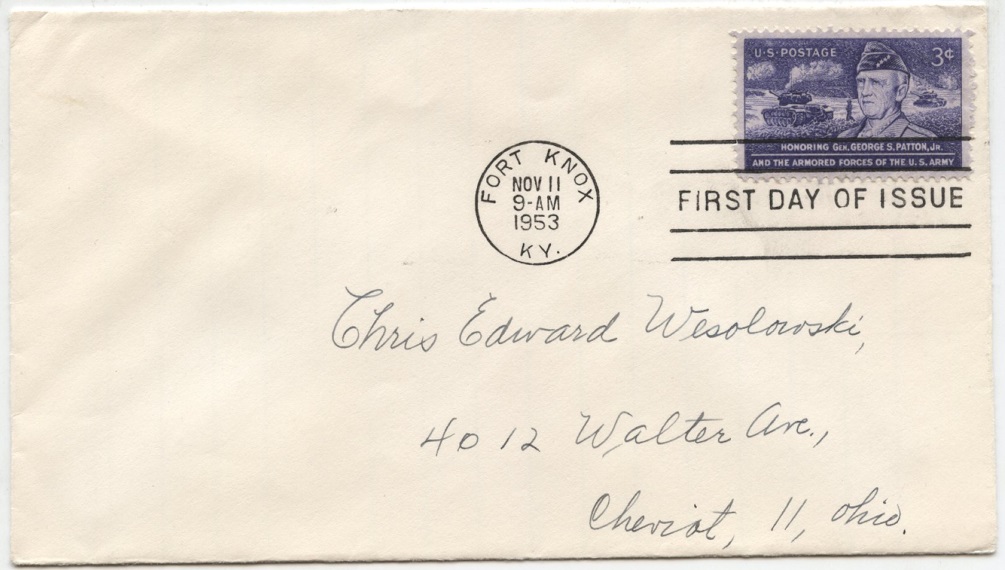 U·S·POSTAGE 3¢
HONORING GEN. GEORGE S. PATTON, JR.
AND THE ARMORED FORCES OF THE U. S. ARMY
FORT KNOX
NOV 11
9-AM
1953
KY.
FIRST DAY OF ISSUE
Chris Edward Wesolowski,
4012 Walter Ave.,
Cheviot, 11, Ohio.